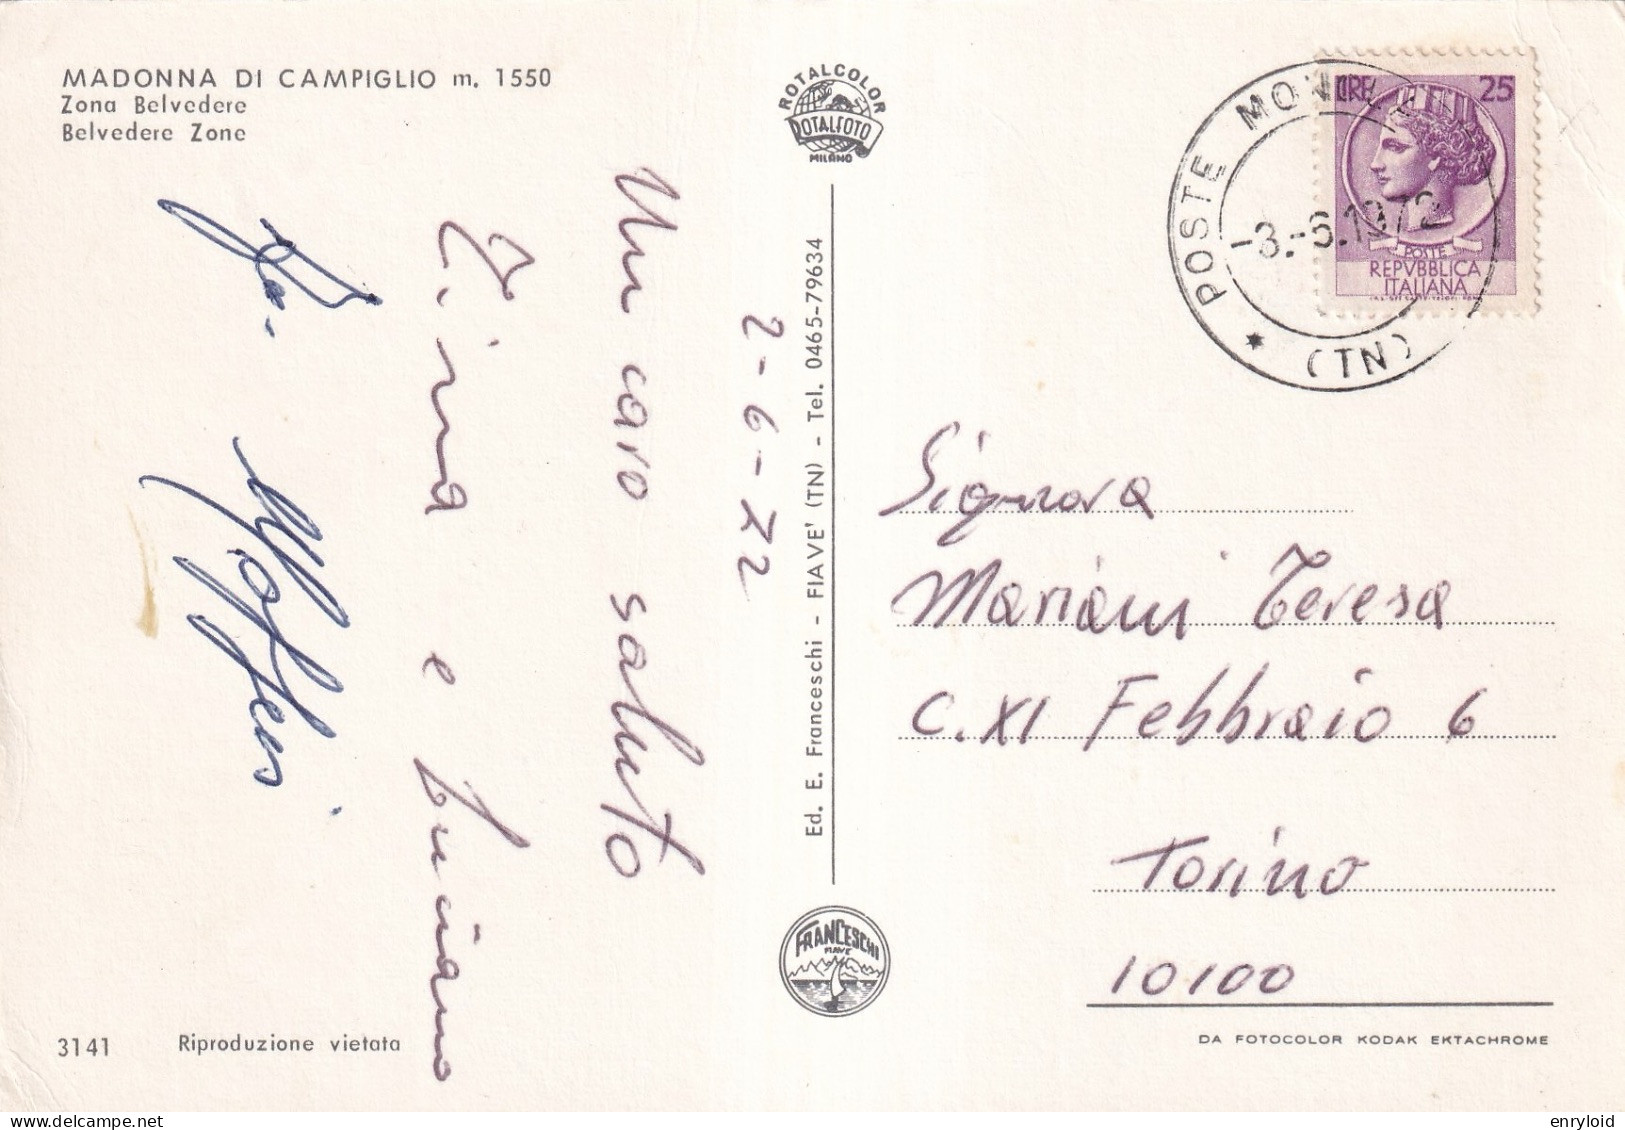 MADONNA DI CAMPIGLIO m. 1550
Zona Belvedere
Belvedere Zone
ROTALCOLOR
ROTALFOTO
MILANO
LIRE 25
POSTE
REPVBBLICA
ITALIANA
* POSTE MON
(TN)
-3.-6.1972
2-6-72
Un caro saluto
Lina e Luciano
Maffei
Ed. E. Franceschi - FIAVE' (TN) - Tel. 0465-79634
Signora
Mariani Teresa
C. XI Febbraio 6
Torino
10100
FRANCESCHI
FIAVE
3141 Riproduzione vietata
DA FOTOCOLOR KODAK EKTACHROME
delcampe.net
enryloid